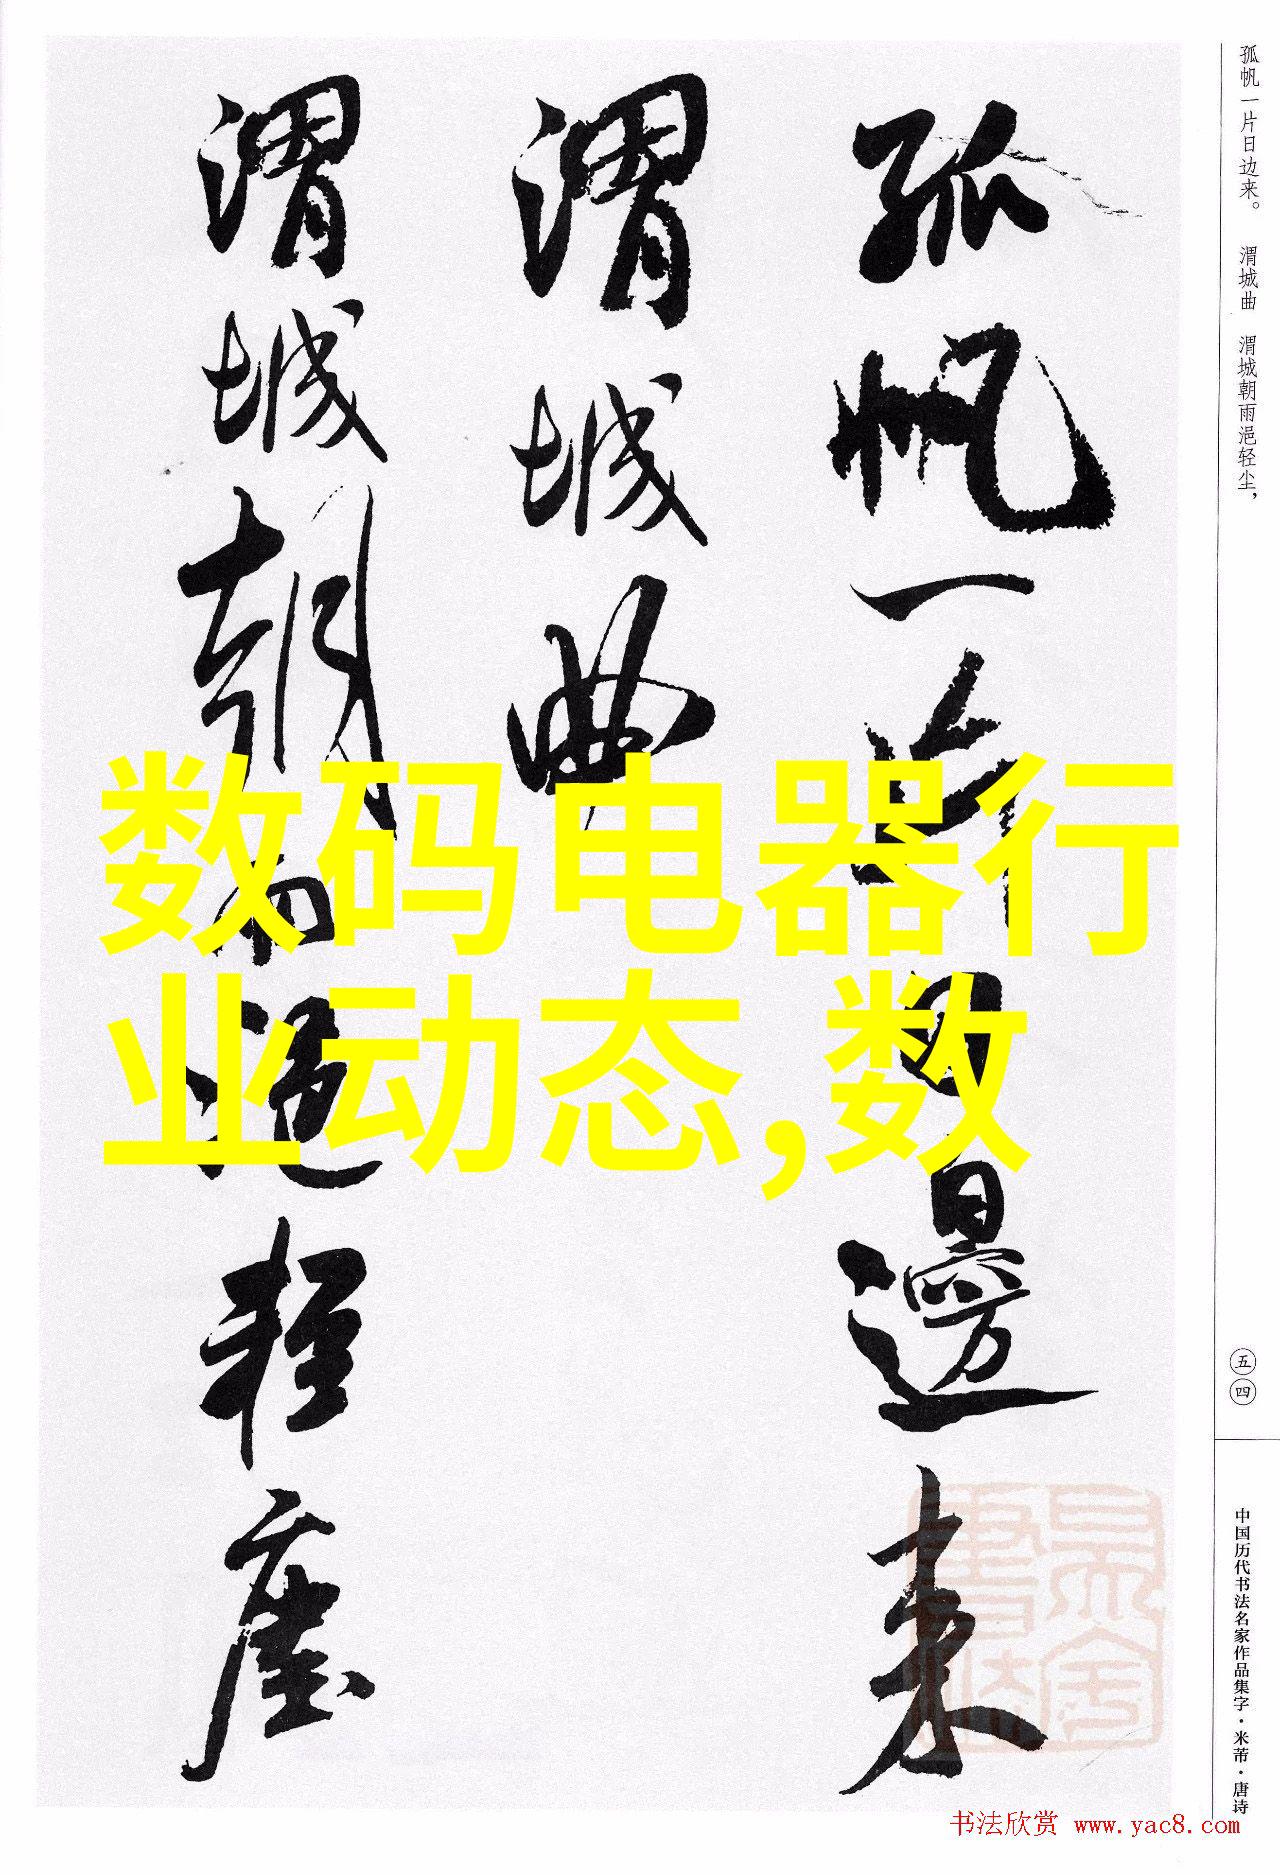 孤帆一片日边来。 渭城曲 渭城朝雨浥轻尘，
孤帆一片日邊来
渭城曲
渭城朝雨浥轻塵
数码电器行
业动态,数
五四
中国历代书法名家作品集字·米芾·唐诗
书法欣赏 www.yac8.com